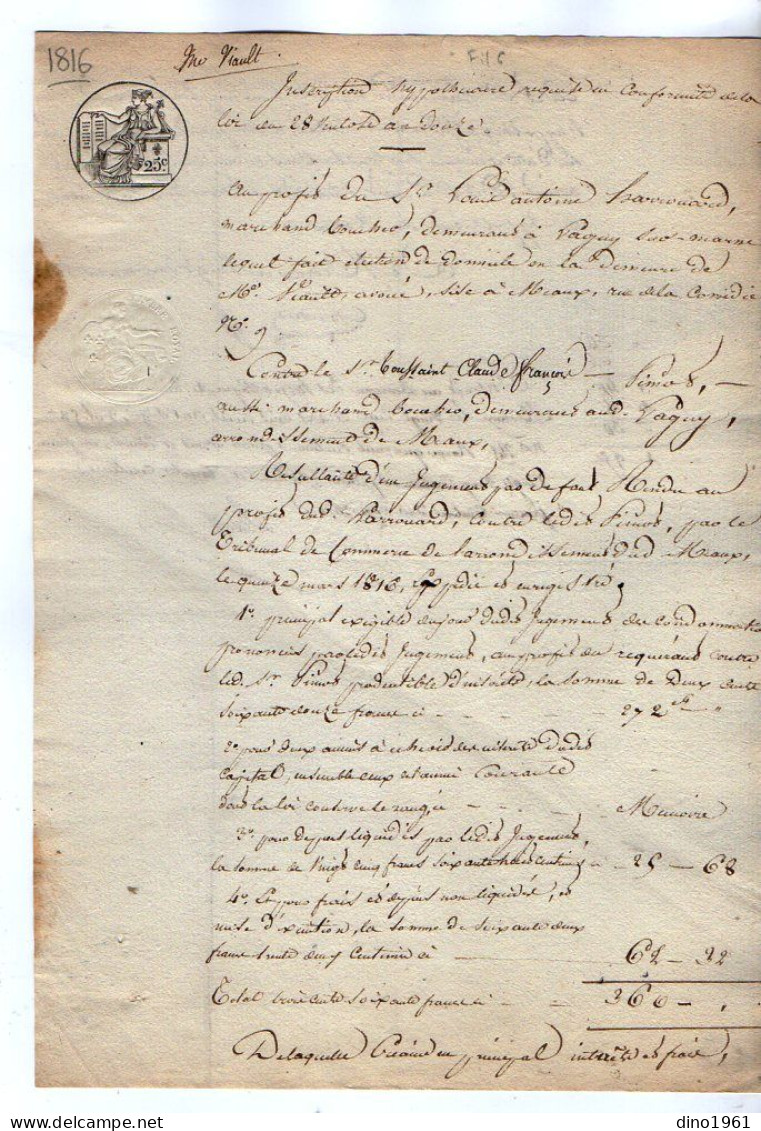 1816
Me Viault.
25c
Inscription hypothécaire requise en Conformité de la
loi du 28 Ventose an douze
au profit du Sr. Louis antoine Harrouard,
marchand boucher, demeurant à Jaguy Seo-marne
lequel fait élection de domicile en la demeure de
Me. Viault, avoué, sise à Meaux, rue de la Comédie
No. 9
Contre le Sr. Toussaint Claude françois Simos,
aussi marchand boucher, demeurant aud. Jaguy,
arrondissement de Meaux,
Resultante d'un Jugement par defaut Rendu au
profit dud. harrouard, Contre ledit Simos, par le
Tribunal de Commerce de l'arrondissement dud Meaux,
le quinze mars 1816, Expédié et enregistré;
1o. principal exigible du jour dudit Jugement des condamnations
prononcées par ledit Jugement, au profit du requérant contre
led. Sr. Simos productible d'intérêts, la somme de Deux cents
soixante douze francs ci 272 "
2o pour deux années à échoir des intérêts dudit
capital, ensemble ceux et année Courante
dont la loi conserve le rang, ci Mémoire
3o. pour depens liquidés par ledit Jugement,
la somme de Vingt cinq francs soixante huit Centimes ci 25 - 68
4o. Et pour frais et depens non liquidés, et
mise d'exécution, la somme de soixante deux
francs trente deux Centimes ci 62 - 32
Total trois cents soixante francs ci 360 - "
De laquelle Créance en principal intérêts et frais,
dino1961